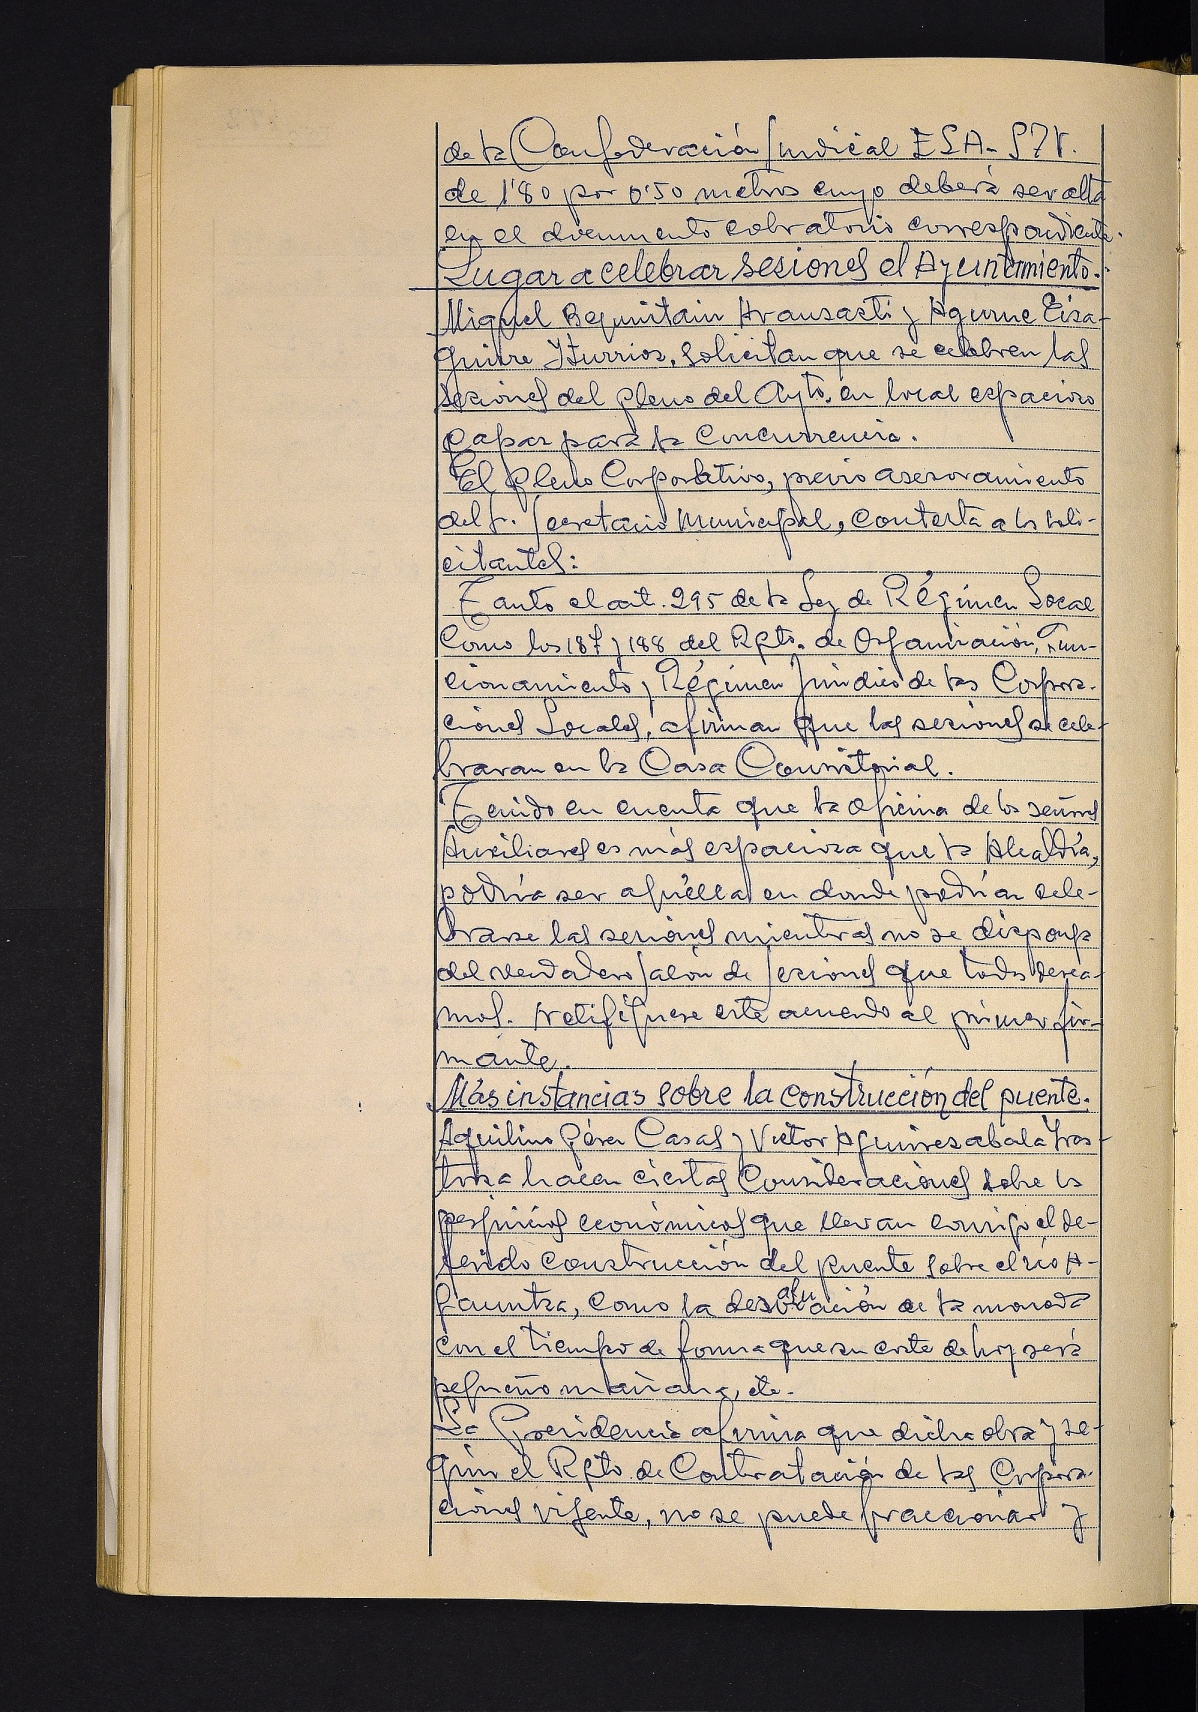 de la Confederación Sindical ELA-STV.
de 1'80 por 0'50 metros cuyo deberá ser alta
en el documento cobratorio correspondiente.
Lugar a celebrar sesiones el Ayuntamiento.
Miguel Beguiristain Aransasti y Agurne Eiza-
guirre Yturrioz, solicitan que se celebren las
sesiones del pleno del Ayto. en local espacioso
capaz para la concurrencia.
El pleno Corporativo, previo asesoramiento
del Sr. Secretario Municipal, contesta a los soli-
citantes:
Tanto el art. 295 de la Ley de Régimen Local
como los 187 y 188 del Rgto. de Organización, Fun-
cionamiento y Régimen Jurídico de las Corpora-
ciones Locales, afirman que las sesiones se cele-
braran en la Casa Consistorial.
Tenido en cuenta que la oficina de los señores
Auxiliares es más espaciosa que la Alcaldía,
podría ser aquélla en donde podrían cele-
brarse las sesiones mientras no se disponga
del verdadero Salón de Sesiones que todos desea-
mos. Notifíquese este acuerdo al primer fir-
mante.
Más instancias sobre la construcción del puente.
Aquilino Pérez Casas y Victor Aguirrezabala
hacen ciertas consideraciones sobre los
perjuicios económicos que llevan consigo el de-
ferido construcción del puente sobre el río A-
rauntza, como la desvaluación de la moneda
con el tiempo de forma que su coste de hoy será
pequeño mañana, etc.
La Presidencia afirma que dicha obra y se-
gún el Rgto. de Contratación de las Corpora-
ciones vigente, no se puede fraccionar y